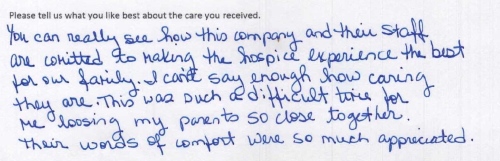 Please tell us what you like best about the care you received.
You can really see how this company and their staff
are comitted to making the hospice experience the best
for our family. I can't say enough how caring
they are. This was such a difficult time for
me loosing my parents so close together.
Their words of comfort were so much appreciated.